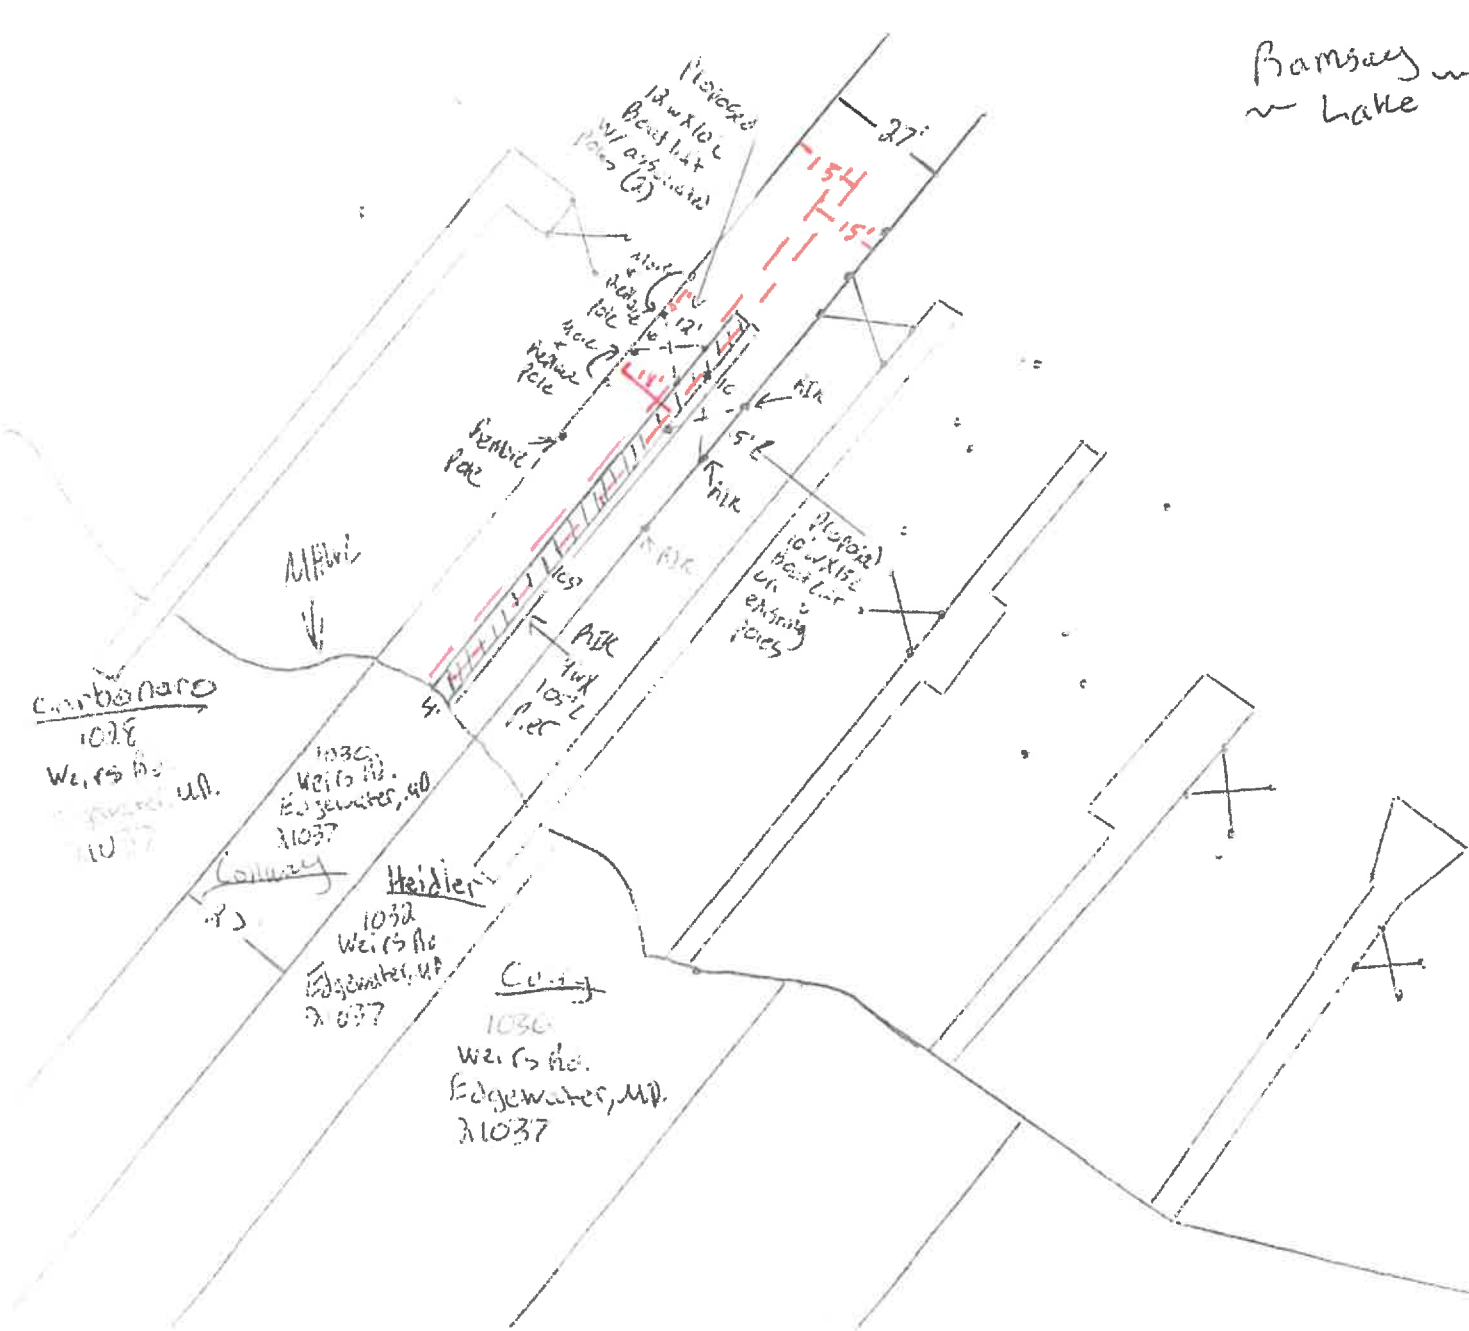 Ramsay ~
~ Lake
27'
Proposed
12'wX10'L
Boat lift
w/ associated
poles (2)
15'
15'
Move
+
Redrive
pole
5'
12'
10
Move
+
Redrive
pole
14'
10
Remove
Pole
RIR
5'
RIR
RIR
Proposed
10'wX15'L
Boat lift
on
existing
poles
MHWL
105'
RIR
4'wX
105'L
Pier
4'
Carbonaro
1028
Weirs Rd.
Edgewater, MD.
1030
Weirs Rd.
Edgewater, MD
21037
Conway
Heidler
1032
Weirs Rd
Edgewater, MD
21037
1036
Weirs Rd.
Edgewater, MD.
21037